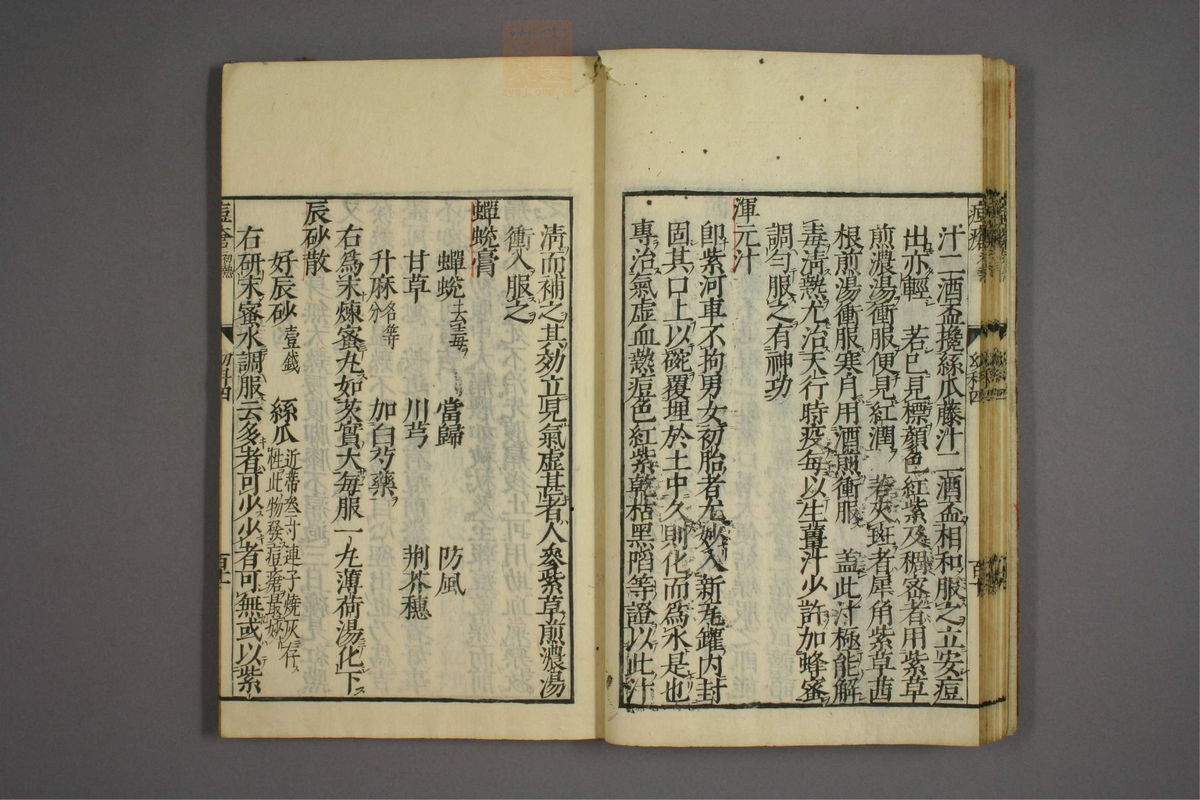 汁二酒盃攪絲瓜藤汁二酒盃相和服之立安痘
出亦輕　若已見標顏色紅紫及稠密者用紫草
煎濃湯衝服便見紅潤　若夾斑者犀角紫草茜
根煎湯衝服寒月用酒煎衝服　盖此汁極能解
毒淸熱尤治天行時疫每以生薑汁少許加蜂蜜
調勻服之有神功
渾元汁
卽紫河車不拘男女初胎者尤妙入新瓦罐内封
固其口上以碗覆埋於土中久則化而為水是也
專治氣虚血熱痘色紅紫乾枯黑陷等證以此汁
淸而補之其効立見氣虚甚者人參紫草煎濃湯
衝入服之
蟬蛻膏
蟬蛻去土毒　當歸　防風
甘草　川芎　荆芥穗
升麻各等分　加白芍藥
右為末煉蜜丸如芡實大每服一丸薄荷湯化下
辰砂散
好辰砂壹錢　絲瓜近蒂叁寸連子燒灰存性此物發痘瘡最妙
右研末蜜水調服云多者可少少者可無或以紫
痘瘡　初熱　幼科四